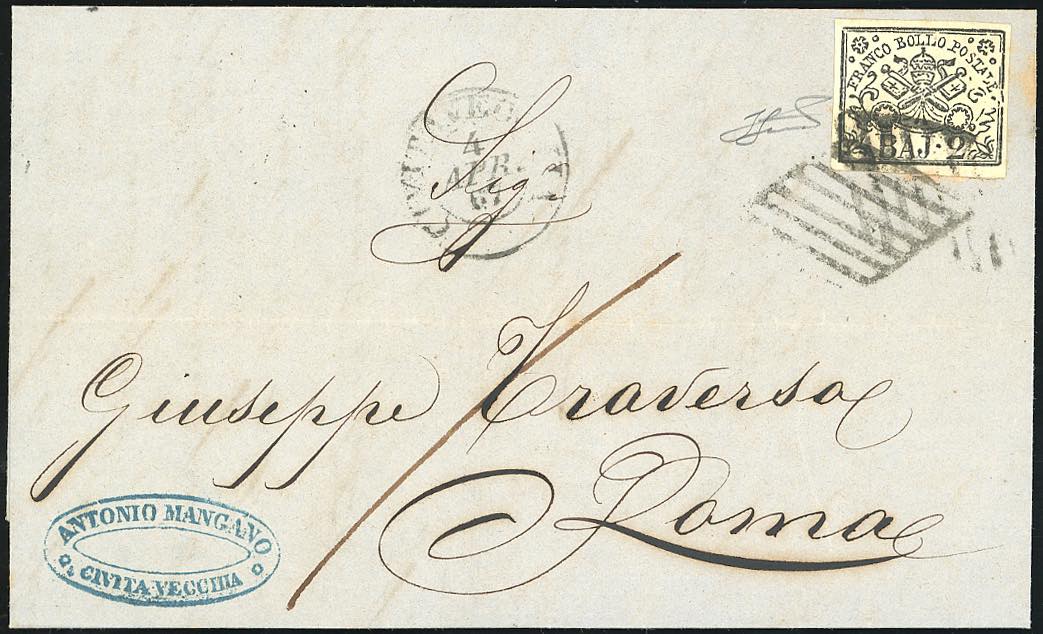 FRANCO BOLLO POSTALE
BAJ. 2
4
APR.
67
Sig.
Giuseppe Traversa
Roma
ANTONIO MANGANO
CIVITA-VECCHIA